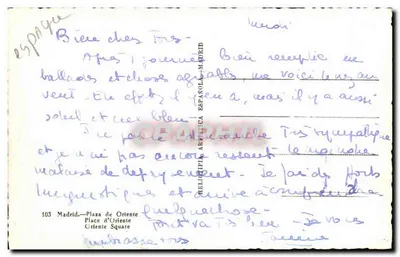 espagne
mardi
Bien chers Tous -
Après 1 journée bien remplie en
ballades et choses agréables me voici le nez au
vent - En effet il y en a, mais il y a aussi
soleil et ciel bleu.
très sympathique
et je n'ai pas encore ressenti le moindre
malaise de dépaysement - Je fais des efforts
linguistiques et arrive à comprendre
quelque chose -
tout va très bien. Je vous
embrasse tous
103 Madrid.—Plaza de Oriente
Place d'Oriente
Oriente Square
HELIOTIPIA ARTISTICA ESPAÑOLA - MADRID